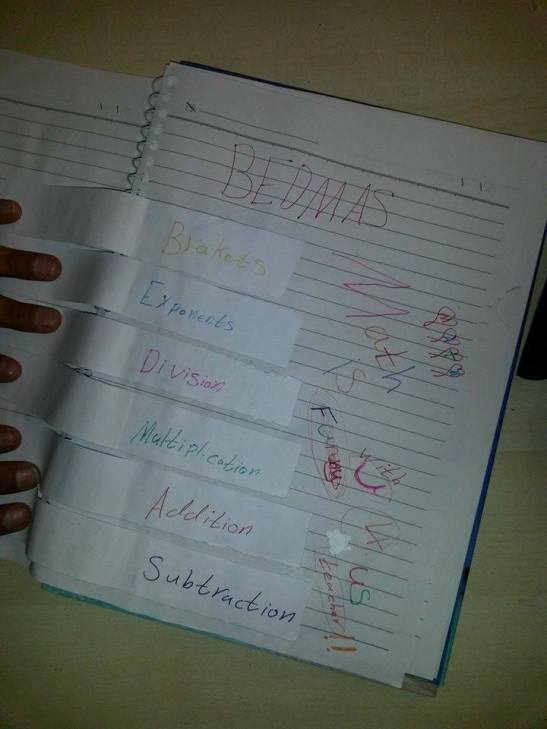 BEDMAS
Brakets
Exponents
Division
Multiplication
Addition
Subtraction
Math
is
Fun with
U
us
teacher!!